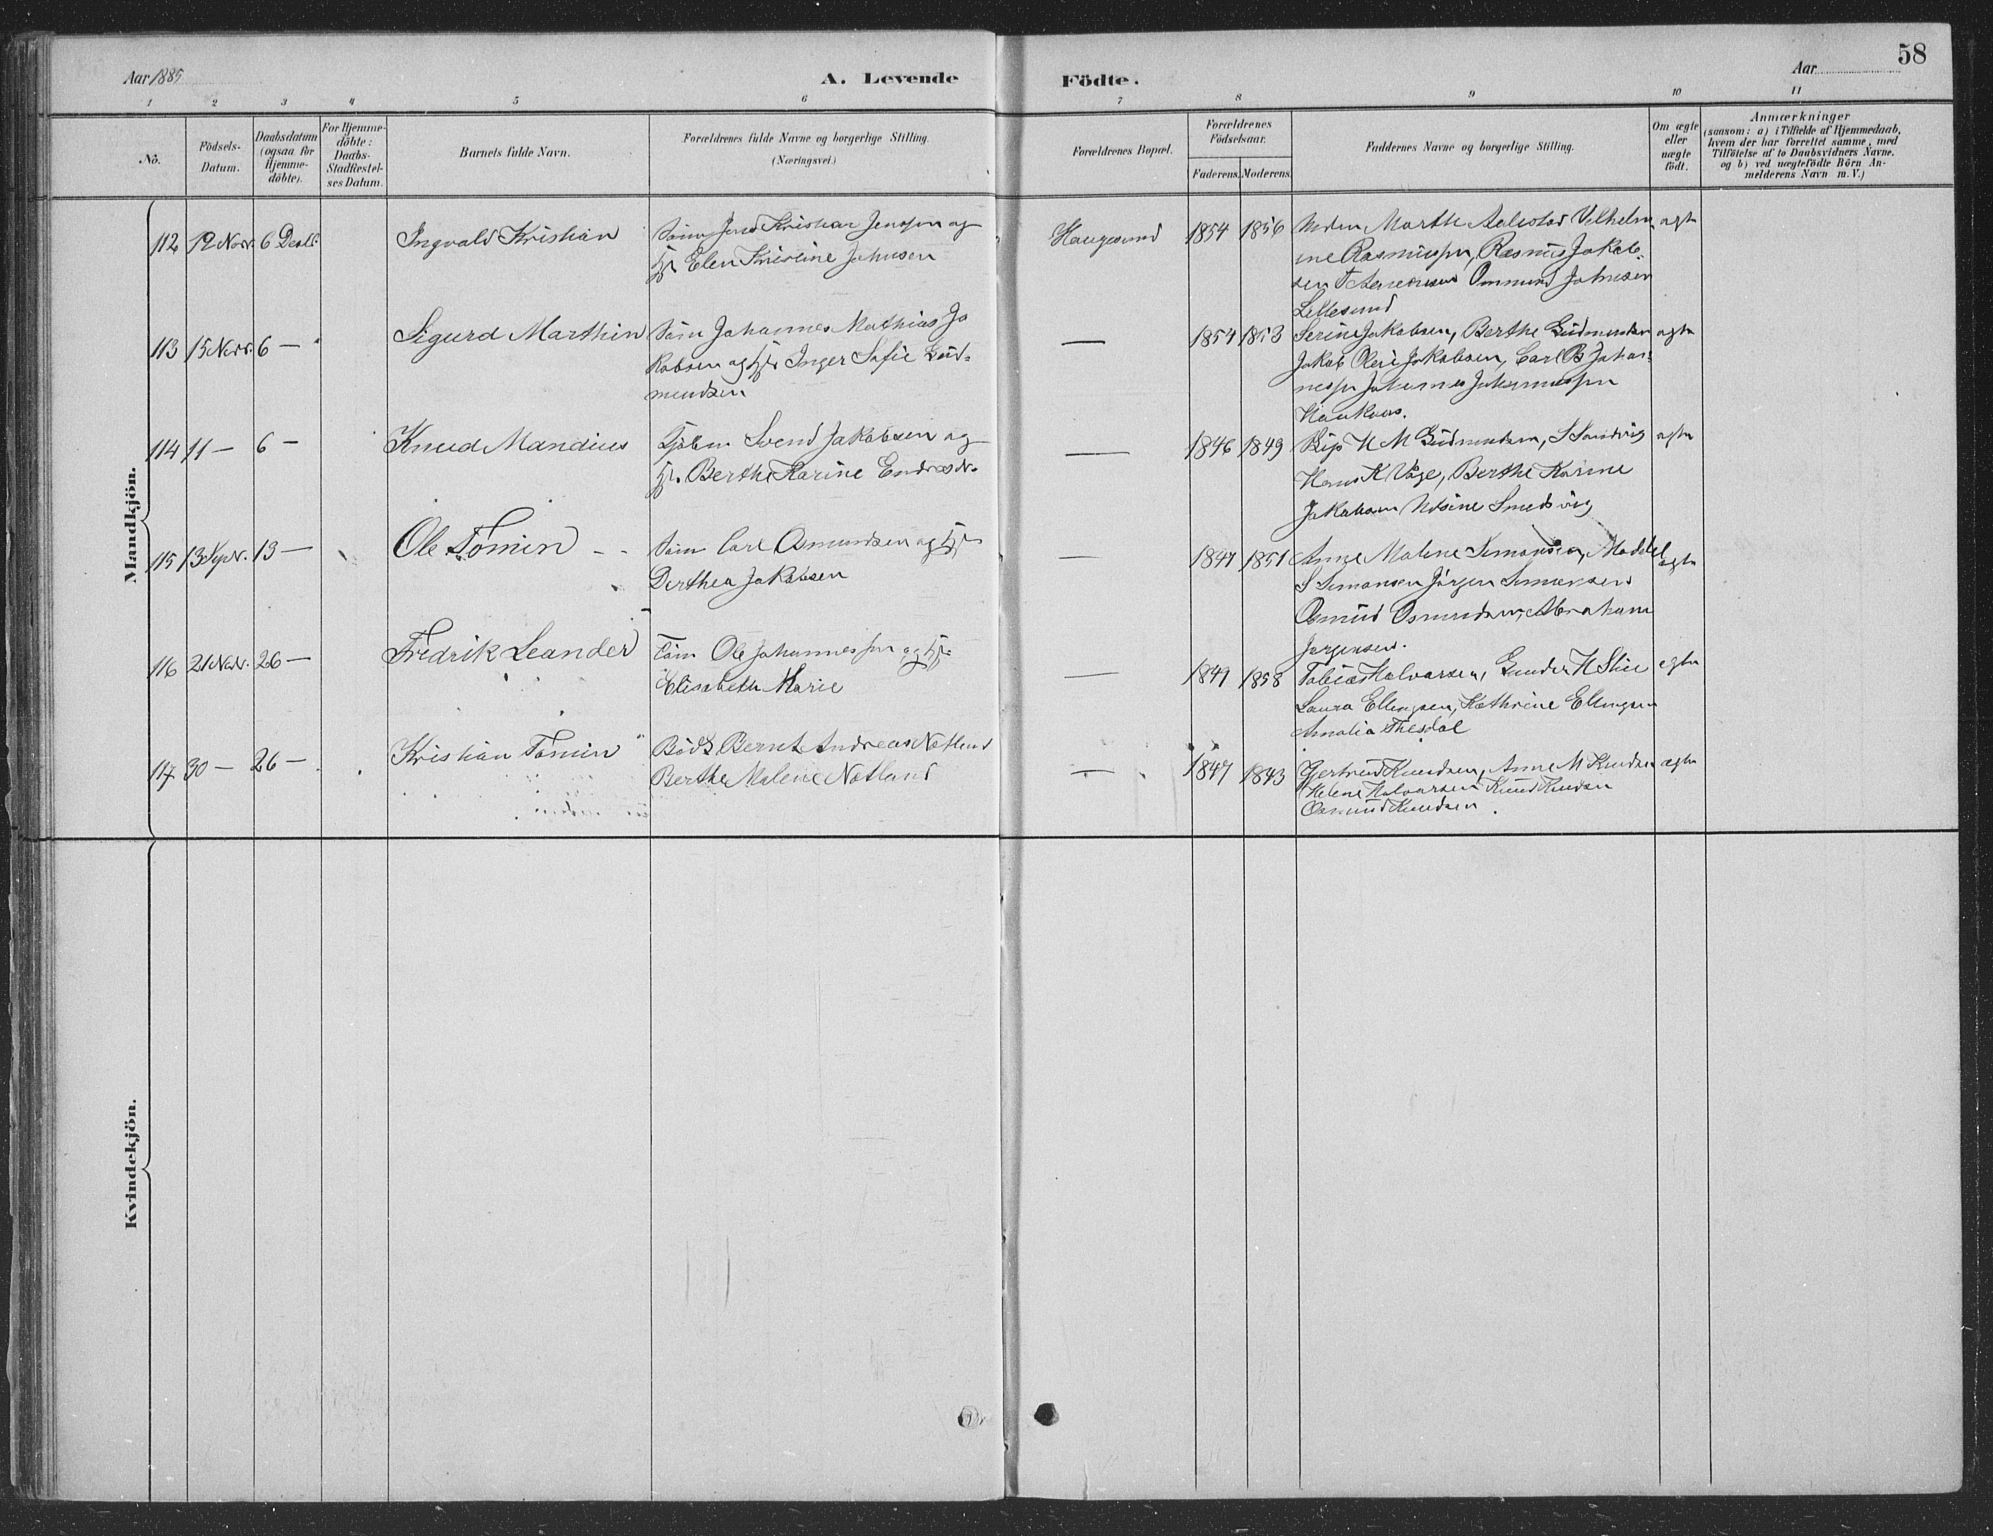 Aar 1885
A. Levende
Födte.
Aar
58
1 2 3 4 5 6 7 8 9 10 11
No.
Födsels-
Datum.
Daabsdatum
(ogsaa for
Hjemme-
döbte).
For Hjemme-
döbte:
Daabs-
Stadfestel-
ses Datum.
Barnets fulde Navn.
Forældrenes fulde Navne og borgerlige Stilling.
(Næringsvei.)
Forældrenes Bopæl.
Forældrenes
Födselsaar.
Faderens. Moderens.
Faddernes Navne og borgerlige Stilling.
Om ægte
eller
uægte
født.
Anmærkninger
(saasom: a) i Tilfælde af Hjemmedaab,
hvem der har forrettet samme, med
Tilföielse af to Daabsvidners Navne.
og b) ved uægtefödte Börn An-
melderens Navn m. V.)
Mandkjön.
112 12 Novr. 6 Decbr. Ingvald Kristian
Jens Kristian Jensen og
Elen Kristine Johnsen
Haugesund 1854 1856
Marthe Aalestad Vilhelm
ine Rasmussen, Rasmus Jakob-
sen Ommund Johnsen
Lillesund
ægte
113 15 Novr. 6 — Sigurd Marthin
Söm Johannes Mathias Ja
kobsen og Hst Inger Sofie Gud-
mundsen
— 1854 1853
Serine Jakobsen, Berthe Gudmundsen
Jakob Oleus Jakobsen, Carl B Johan-
nesen Johannes Johannessen
Haukaas.
ægte
114 11 — 6 — Knud Mandius
Svend Jakobsen og
Berthe Karine Endresdr.
— 1846 1849
H M Gudmundsen, S Sandvig
Hans K Vage, Berthe Karine
Jakobsen Smedsvig
ægte
115 13 Septr. 13 — Ole Tomin
Söm Carl Osmundsen og Hst
Derthea Jakobsen
— 1847 1851
Anne Malene Simonsen,
S Simonsen Jörgen Simonsen
Osmund Osmundsen, Abraham
Jörgensen.
ægte
116 21 Novr. 26 — Fredrik Leander
Söm Ole Johannessen og Hst
Elisabeth Marie
— 1849 1858
Tobias Halvorsen, Gunder H
Laura Ellingsen, Kathrine Ellingsen
Amalia
ægte
117 30 — 26 — Kristian Tomin
Bernt Andreas Natland
Berthe Malene Natland
— 1847 1843
Gertrud Knudsen, Anne M Knudsen
Helene Halvorsen Knud Knudsen
Osmund Knudsen.
ægte
Kvindekjön.